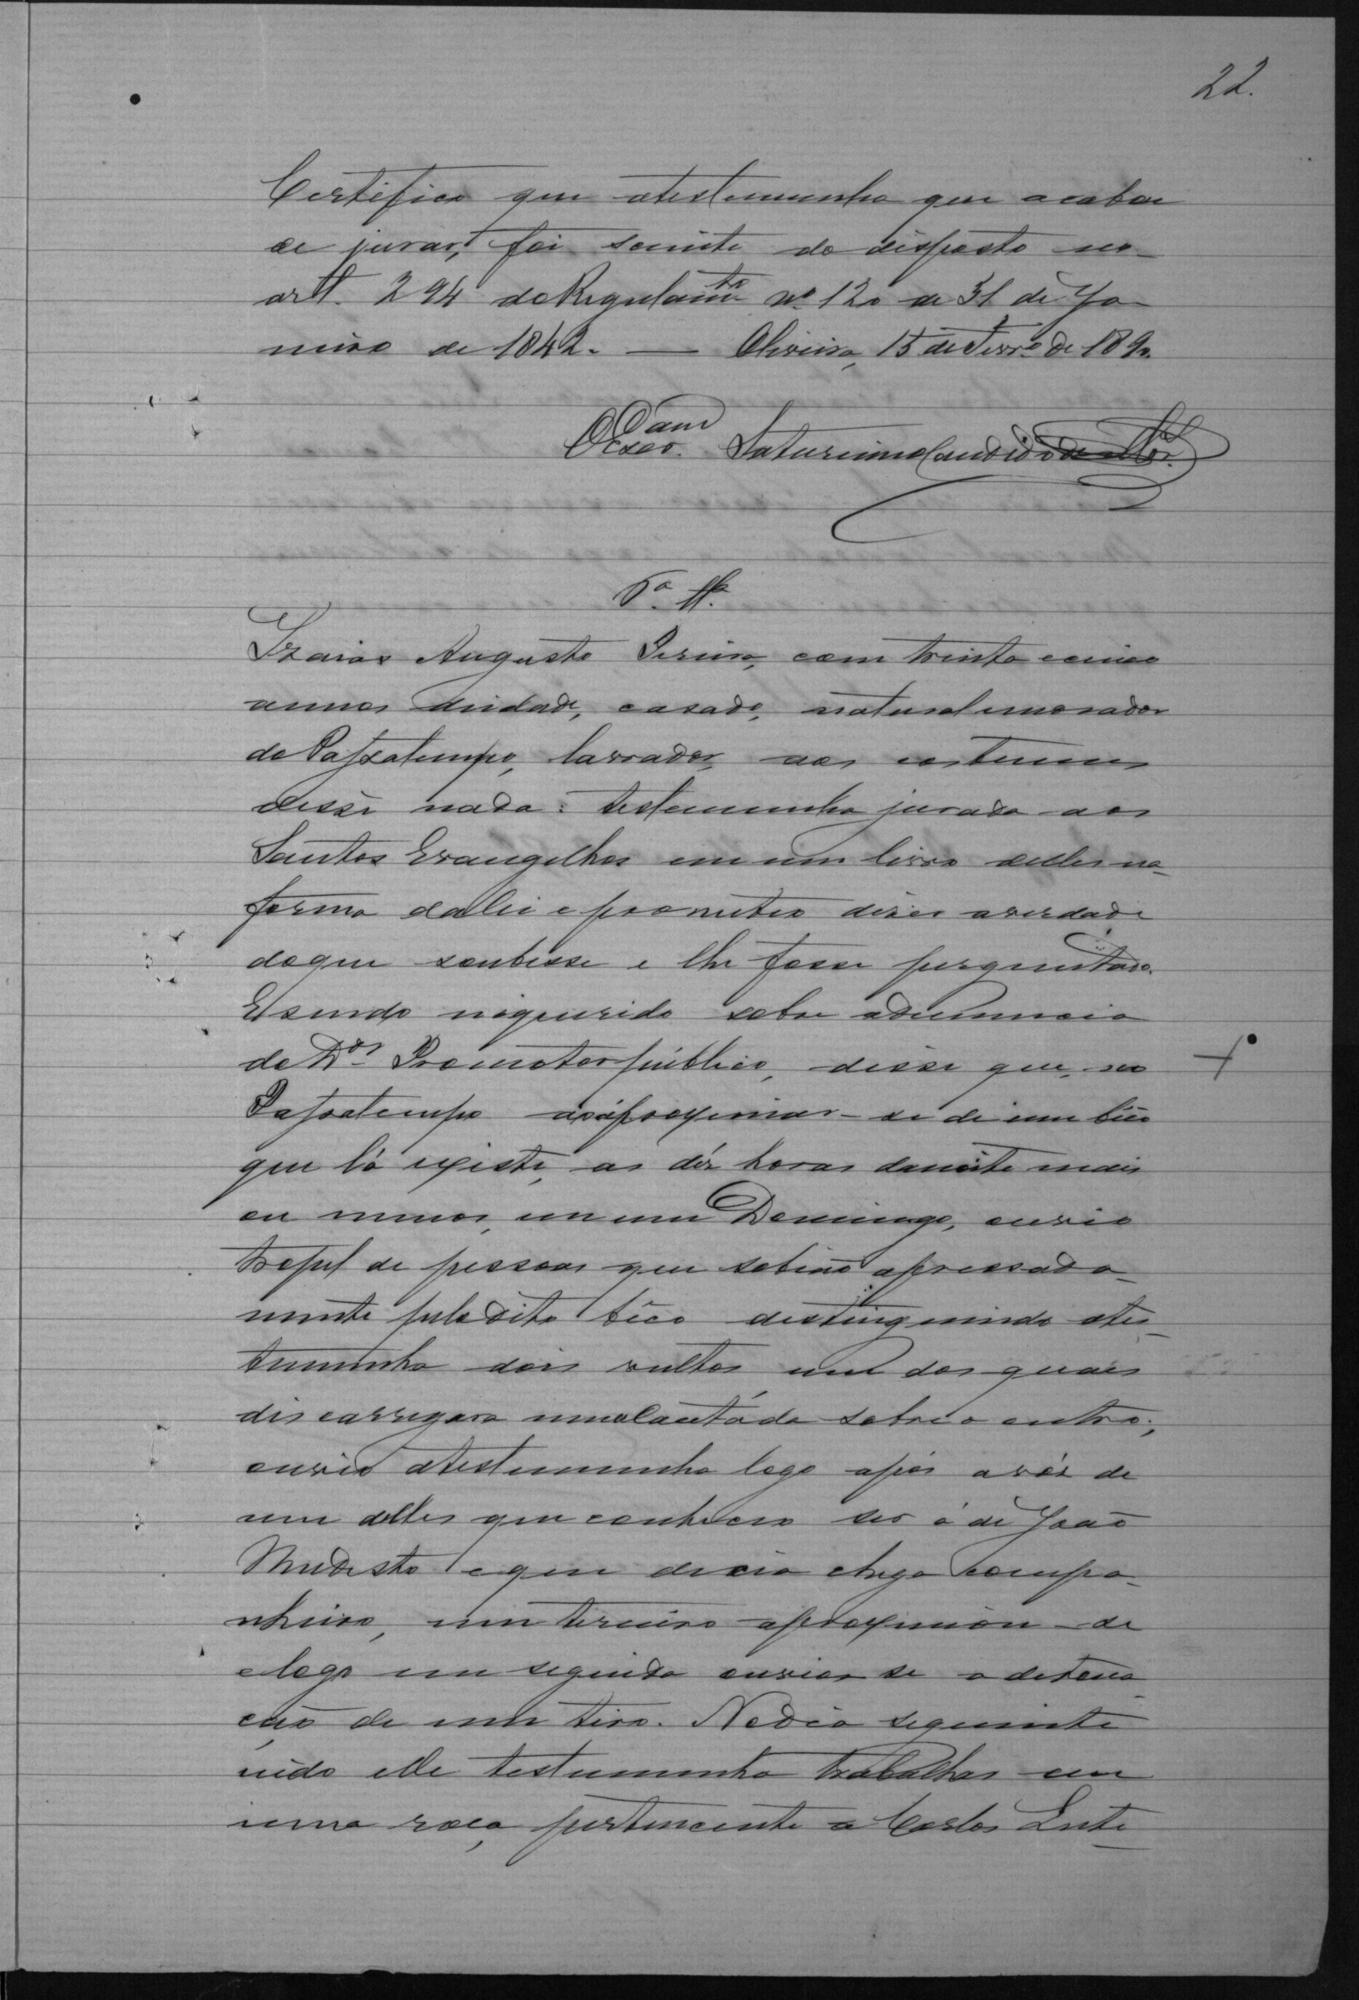 22.
Certifico que atestemunha que acaba
de jurar, foi sciente do disposto no
art. 294 do Regulamto nº 120 de 31 de Ja-
neiro de 1842. — Oliveira, 15 de Fevro de 189
O Escam Saturnino Candido de
5ª Ta
Izaias Augusto Pereira, com trinta ecinco
annos deidade, casado, natural emorador
do Passatempo, lavrador, aos costumes
disse nada: testemunha jurada aos
Santos Evangelhos em um livro delles na
forma dalei e prometteo diser averdade
doque soubesse e lhe fosse perguntado.
Esendo inquerido sobre adenuncia
do Dor Promotor publico, disse que, no
Passatempo ao aproximar-se de um bêco
que lá existe, as déz horas danoite mais
ou menos, em um Domingo, ouvio
tropel de pessoas que sobião apressada-
mente pelo dito bêco distinguindo ates-
temunha dois vultos um dos quaes
discarregava uma cacetáda sobre o outro;
ouvio atestemunha logo após avóz de
um delles que conheceo ser á de João
Modesto e que dizia chega compa-
nheiro, um terceiro aproximou-se
elogo em seguida ouvio-se a detona-
ção de um tiro. Nodia seguinte
indo elle testemunha trabalhar em
uma roça pertencente a Carlos Leite